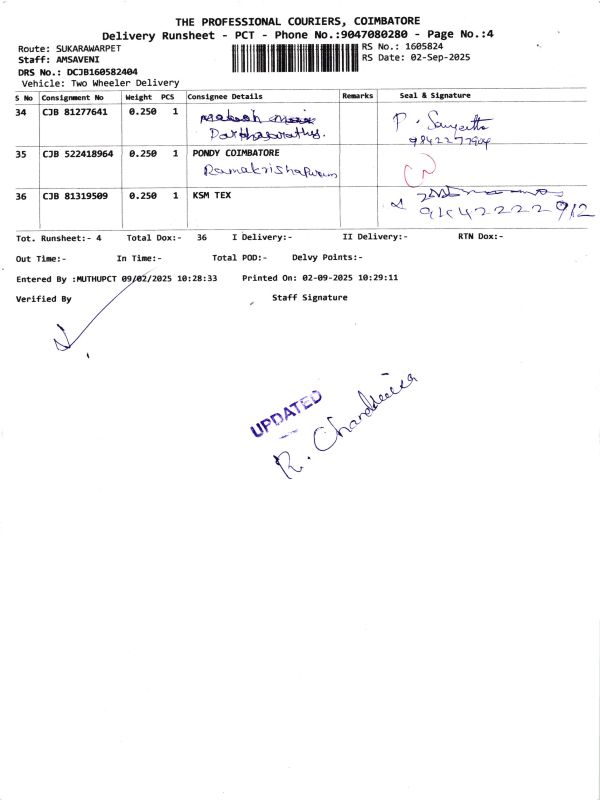 THE PROFESSIONAL COURIERS, COIMBATORE
Delivery Runsheet - PCT - Phone No.:9047080280 - Page No.:4
Route: SUKARAWARPET
RS No.: 1605824
Staff: AMSAVENI
RS Date: 02-Sep-2025
DRS No.: DCJB160582404
Vehicle: Two Wheeler Delivery
S No Consignment No Weight PCS Consignee Details Remarks Seal & Signature
34 CJB 81277641 0.250 1
Parthasarathy. P. Sangeetha
35 CJB 522418964 0.250 1 PONDY COIMBATORE
Ramakrishapuram
36 CJB 81319509 0.250 1 KSM TEX
Tot. Runsheet:- 4 Total Dox:- 36 I Delivery:- II Delivery:- RTN Dox:-
Out Time:- In Time:- Total POD:- Delvy Points:-
Entered By :MUTHUPCT 09/02/2025 10:28:33 Printed On: 02-09-2025 10:29:11
Verified By Staff Signature
UPDATED
R. Chandhirika